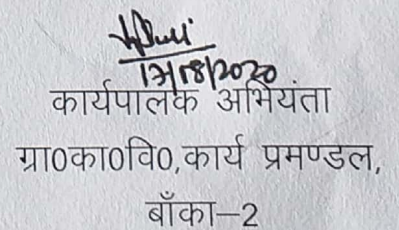 कार्यपालक अभियंता
ग्रा0का0वि0,कार्य प्रमण्डल,
बाँका–2